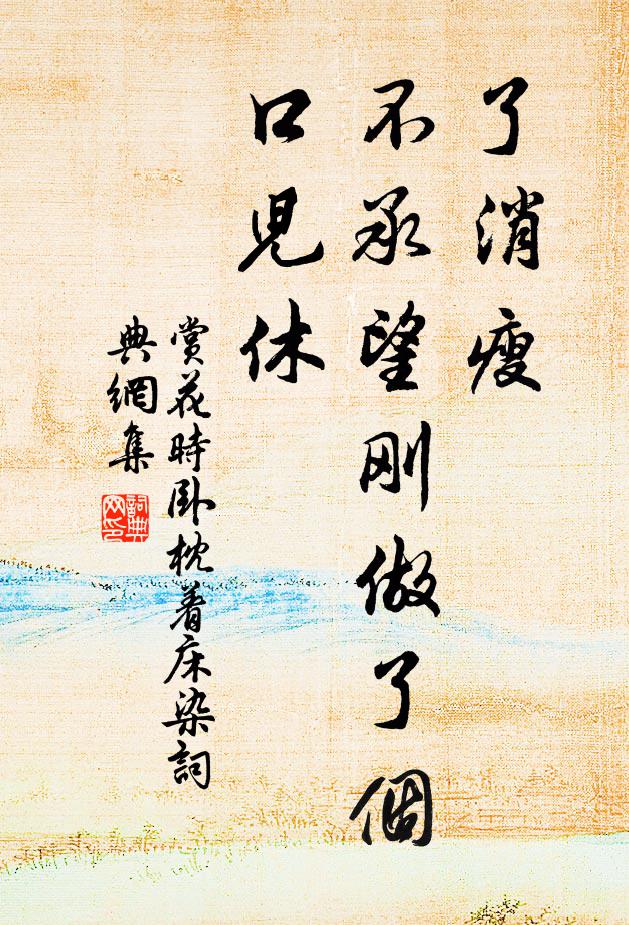 了消瘦
不承望刚做了個
口児休
賞花時卧枕着床染詞
典網集
詞典
网印